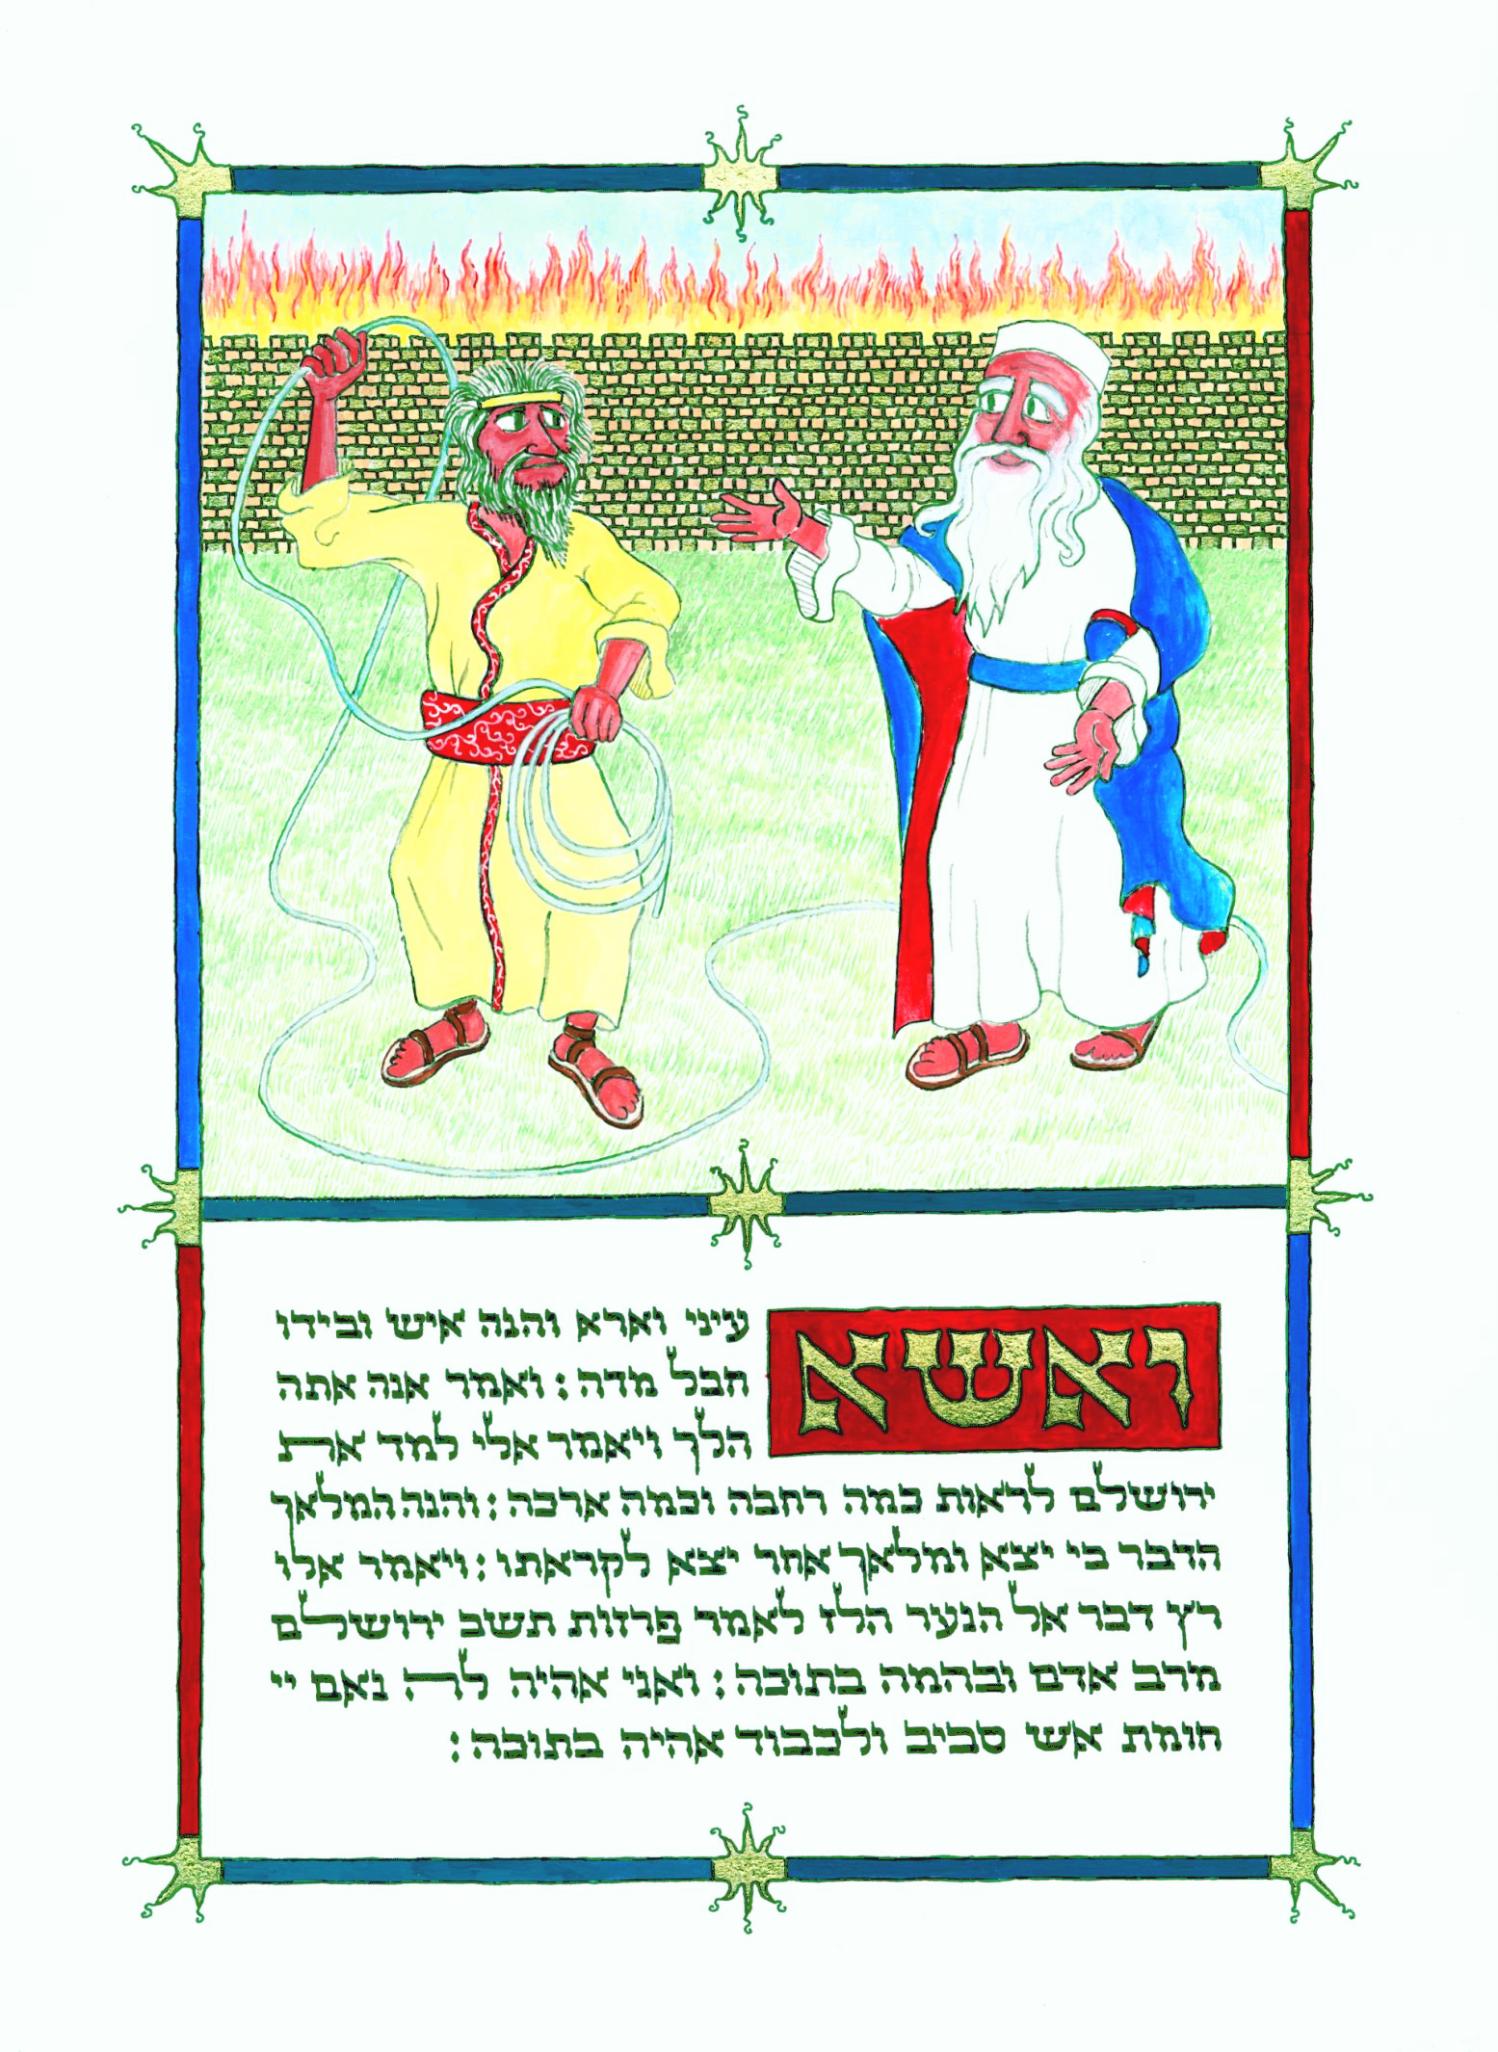 ואשא עיני וארא והנה איש ובידו
חבל מדה : ואמר אנה אתה
הלך ויאמר אלי למד את
ירושלם לראות כמה רחבה וכמה ארכה : והנה המלאך
הדבר בי יצא ומלאך אחר יצא לקראתו : ויאמר אלו
רץ דבר אל הנער הלז לאמר פרזות תשב ירושלם
מרב אדם ובהמה בתוכה : ואני אהיה לה נאם יי
חומת אש סביב ולכבוד אהיה בתוכה :